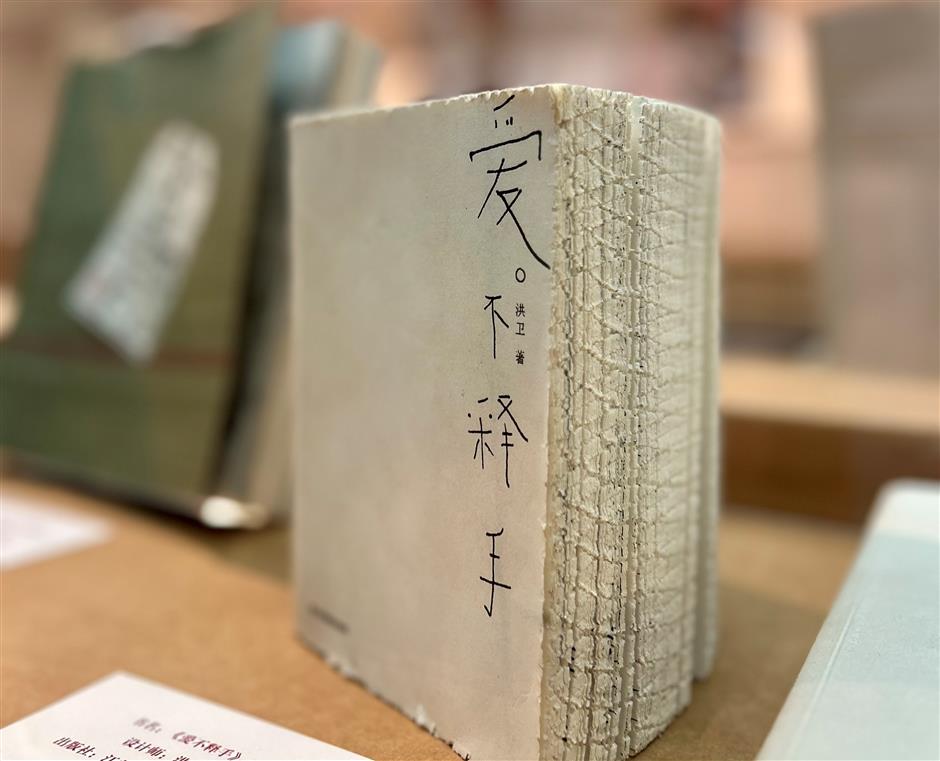 爱。不释手
洪卫 著
书名：《爱不释手》
设计师：洪
出版社：江